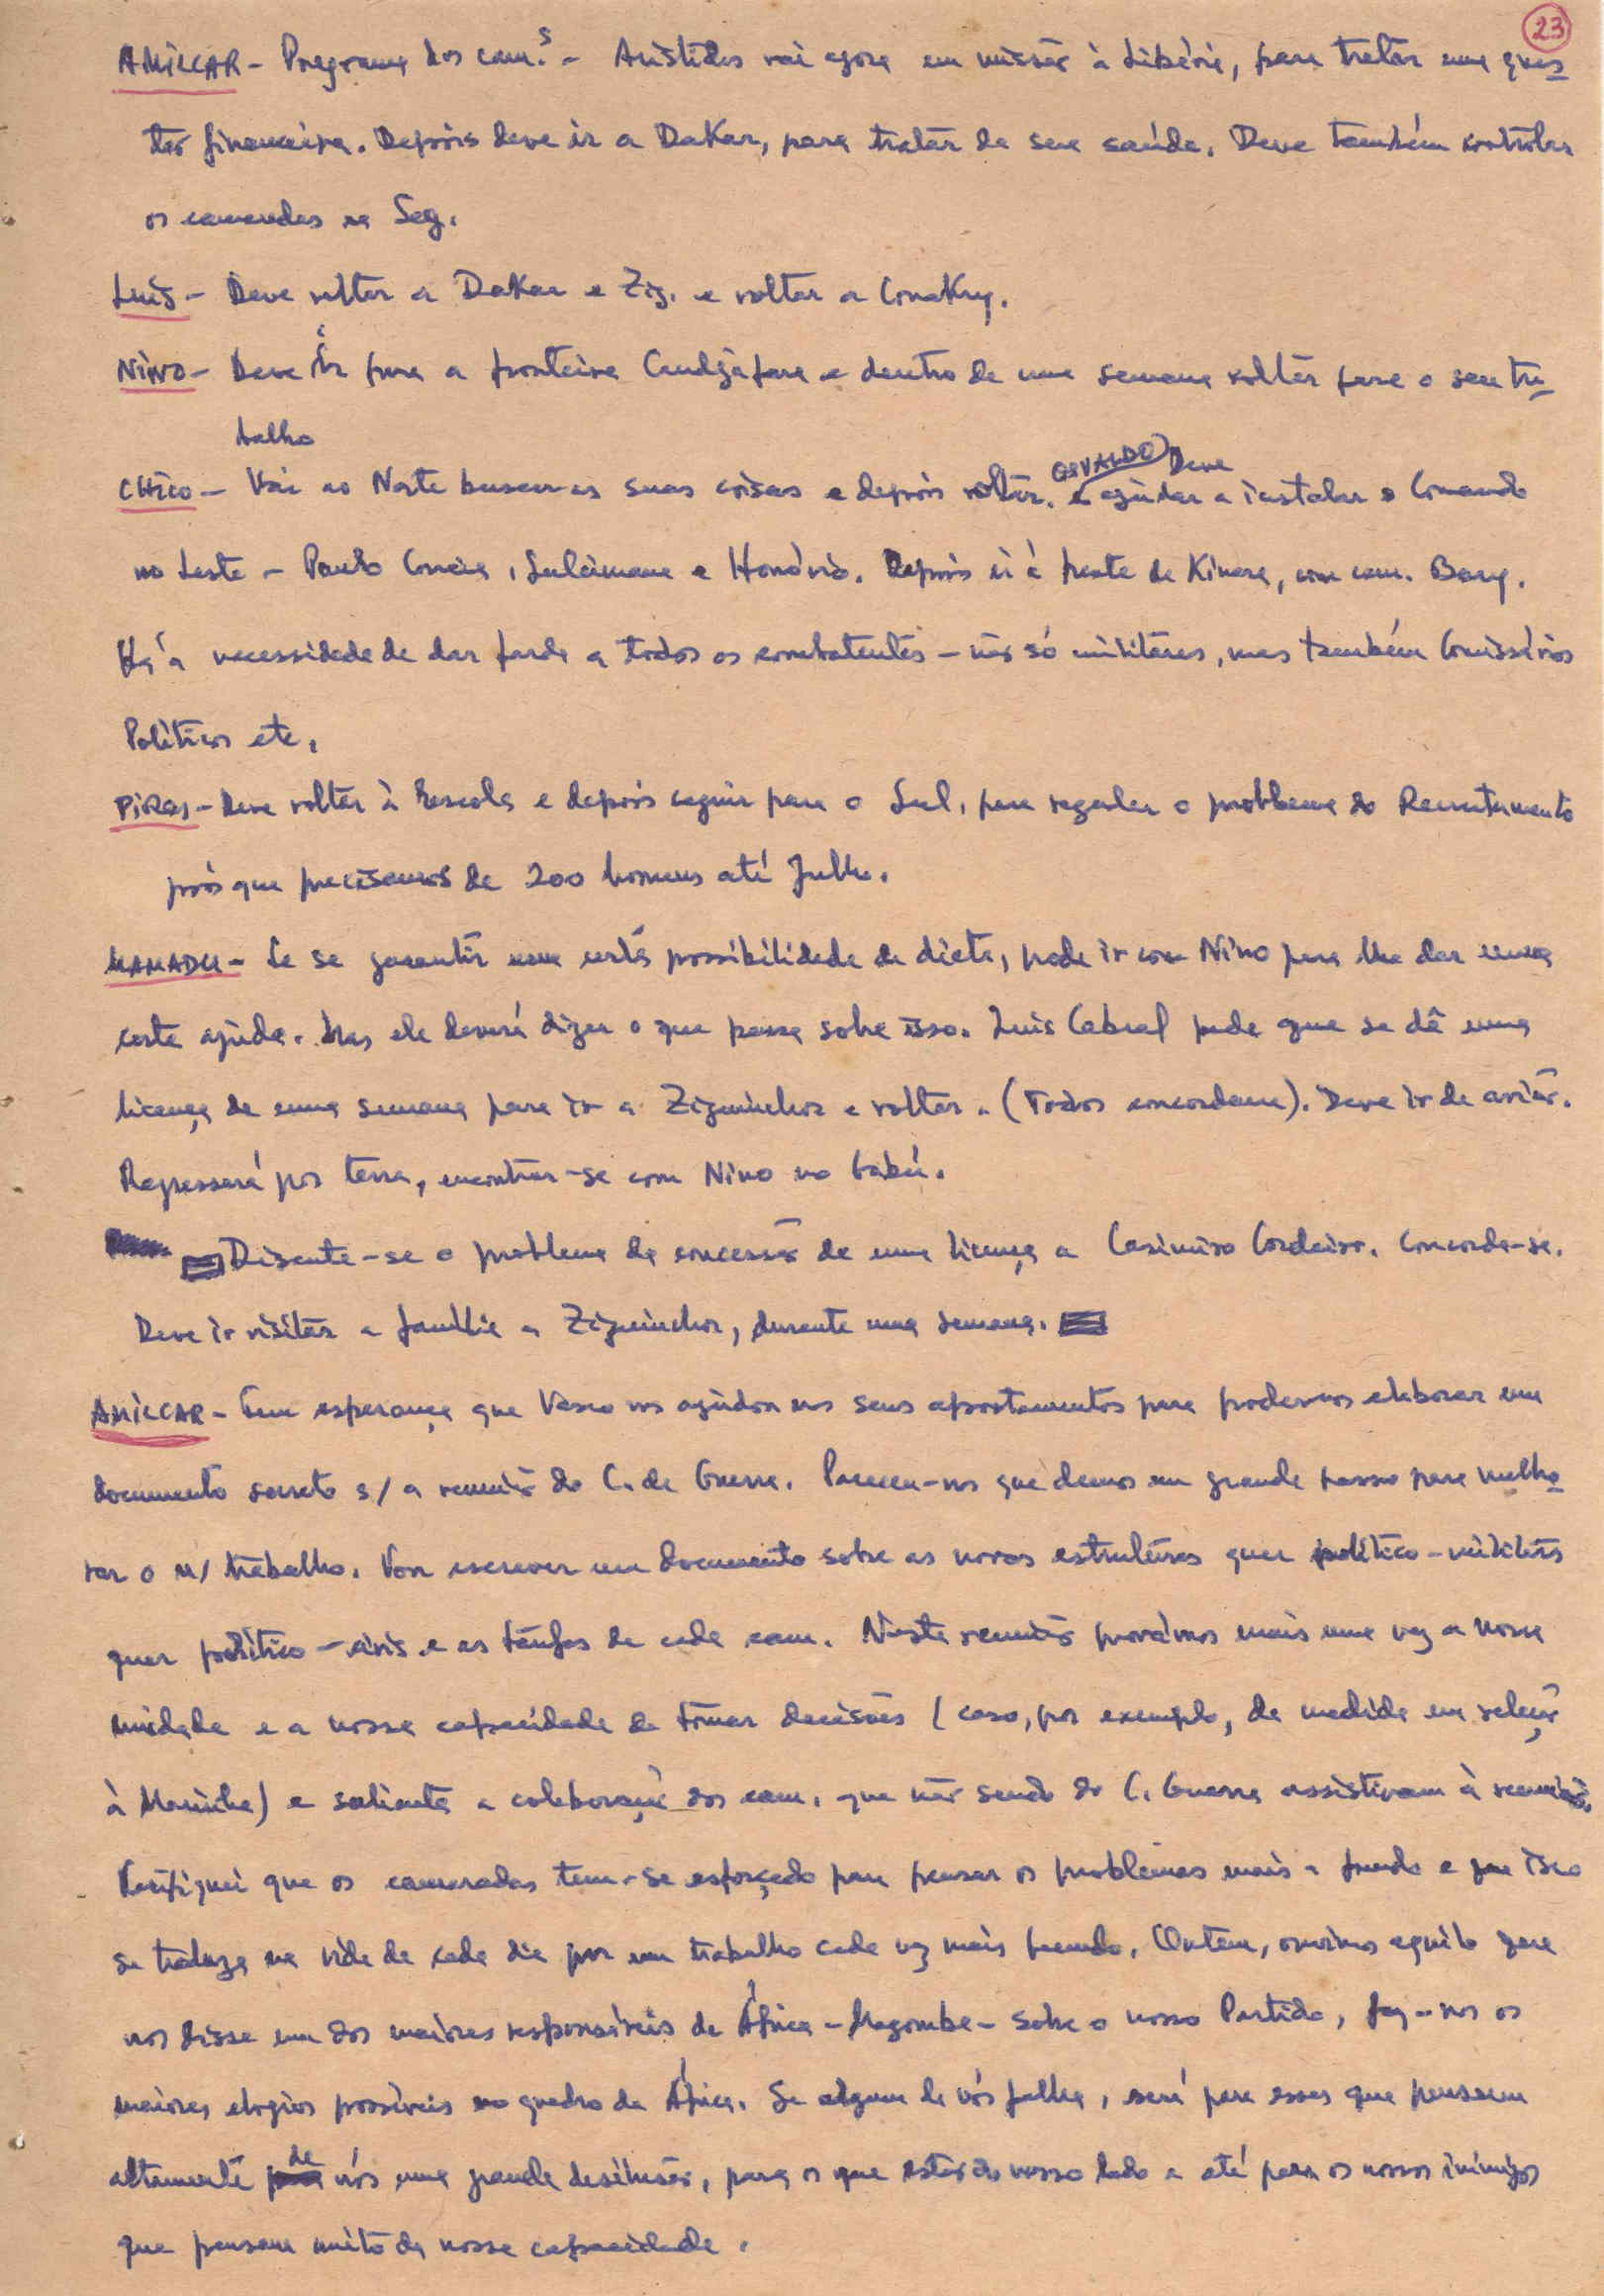 23
AMILCAR - Programa dos cam.s - Aristides vai agora em missão à Libéria, para tratar uma ques
tão financeira. Depois deve ir a Dakar, para tratar da sua saúde. Deve também controlar
os camaradas na Seg.
Luís - Deve voltar a Dakar e Zig. e voltar a Conakry.
NINO - Deve ir para a fronteira Candjafara e dentro de uma semana voltar para o seu tra
balho
CHICO - Vai ao Norte buscar as suas coisas e depois voltar. OSVALDO Deve ajudar a instalar o Comando
no Leste - Paulo Correia, Suleimane e Honório. Depois ir à frente de Kinara, com cam. Bary.
Há a necessidade de dar farda a todos os combatentes - não só militares, mas também Comissários
Políticos etc.
PIRES - Deve voltar à Escola e depois seguir para o Sul, para regular o problema do Recrutamento
pois que precisamos de 200 homens até Julho.
MAMADU - Se se garantir uma certa possibilidade de dieta, pode ir com Nino para lhe dar uma
certa ajuda. Mas ele deverá dizer o que pensa sobre isso. Luis Cabral pede que se dê uma
licença de uma semana para ir a Ziguinchor e voltar. (Todos concordam). Deve ir de avião.
Regressará por terra, encontrar-se com Nino no Gabú.
Discute-se o problema da concessão de uma licença a Casimiro Cordeiro. Concorda-se.
Deve ir visitar a família a Ziguinchor, durante uma semana.
AMILCAR - Tem esperança que Vasco nos ajudou nos seus apontamentos para podermos elaborar um
documento secreto s/ a reunião do C. de Guerra. Pareceu-nos que demos um grande passo para melho
rar o n/ trabalho. Vou escrever um documento sobre as novas estruturas quer político-militares
quer político-civis e as tarefas de cada cam. Nesta reunião provámos mais uma vez a nossa
unidade e a nossa capacidade de tomar decisões (caso, por exemplo, da medida em relação
à Marinha) e salienta a colaboração dos cam. que não sendo do C. Guerra assistiram à reunião.
Verifiquei que os camaradas tem-se esforçado para pensar os problemas mais a fundo e que isso
se traduza na vida de cada dia por um trabalho cada vez mais fecundo. Ontem, ouvimos aquilo que
nos disse um dos maiores responsáveis de África - Magombe - sobre o nosso Partido, fez-nos os
maiores elogios possíveis no quadro da África. Se algum de nós falha, será para esses que pensam
altamente de nós uma grande desilusão, para os que estão do nosso lado e até para os nossos inimigos
que pensam muito da nossa capacidade.